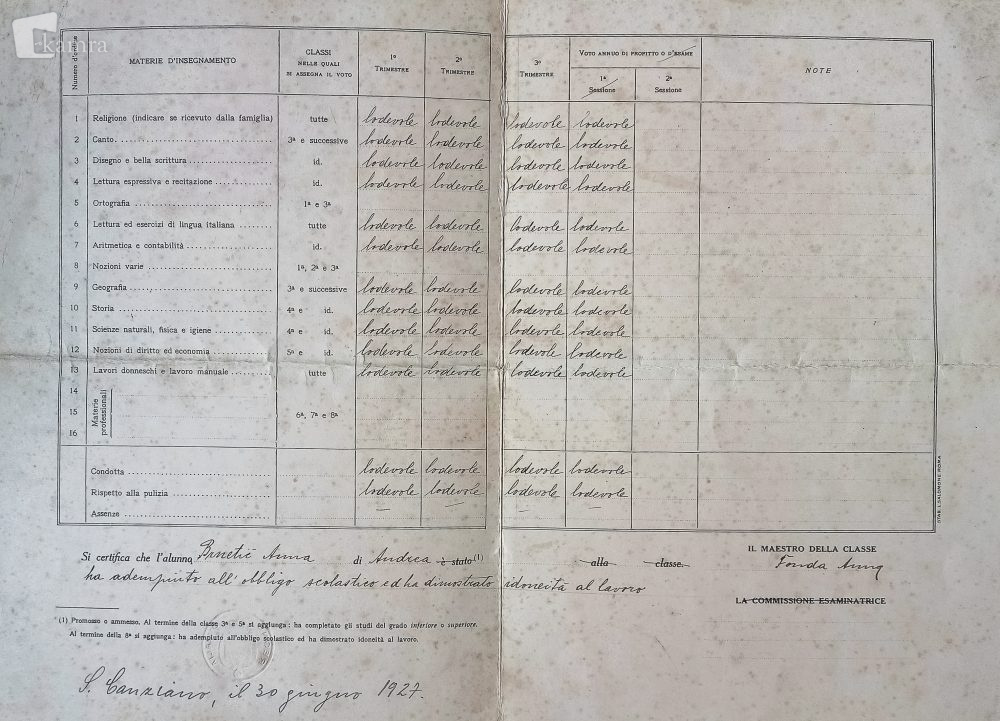 kamra
Numero d'ordine MATERIE D'INSEGNAMENTO CLASSI NELLE QUALI SI ASSEGNA IL VOTO 1º TRIMESTRE 2º TRIMESTRE 3º TRIMESTRE VOTO ANNUO DI PROFITTO O D'ESAME 1ª Sessione 2ª Sessione NOTE
1 Religione (indicare se ricevuto dalla famiglia) tutte lodevole lodevole lodevole lodevole
2 Canto 3ª e successive lodevole lodevole lodevole lodevole
3 Disegno e bella scrittura id. lodevole lodevole lodevole lodevole
4 Lettura espressiva e recitazione id. lodevole lodevole lodevole lodevole
5 Ortografia 1ª e 3ª
6 Lettura ed esercizi di lingua italiana tutte lodevole lodevole lodevole lodevole
7 Aritmetica e contabilità id. lodevole lodevole lodevole lodevole
8 Nozioni varie 1ª, 2ª e 3ª
9 Geografia 3ª e successive lodevole lodevole lodevole lodevole
10 Storia 4ª e id. lodevole lodevole lodevole lodevole
11 Scienze naturali, fisica e igiene 4ª e id. lodevole lodevole lodevole lodevole
12 Nozioni di diritto ed economia 5ª e id. lodevole lodevole lodevole lodevole
13 Lavori donneschi e lavoro manuale tutte lodevole lodevole lodevole lodevole
14
15 Materie professionali 6ª, 7ª e 8ª
16
Condotta lodevole lodevole lodevole lodevole
Rispetto alla pulizia lodevole lodevole lodevole lodevole
Assenze
STAB. L. SALOMONE ROMA
Si certifica che l'alunna Anna di Andrea è stato (1) alla classe.
ha adempiuto all'obbligo scolastico ed ha dimostrato idoneità al lavoro
IL MAESTRO DELLA CLASSE
Fonda Anna
LA COMMISSIONE ESAMINATRICE
(1) Promosso o ammesso. Al termine della classe 3ª e 5ª si aggiunga: ha completato gli studi del grado inferiore o superiore.
Al termine della 8ª si aggiunga: ha adempiuto all'obbligo scolastico ed ha dimostrato idoneità al lavoro.
S. Canziano, il 30 giugno 1927.